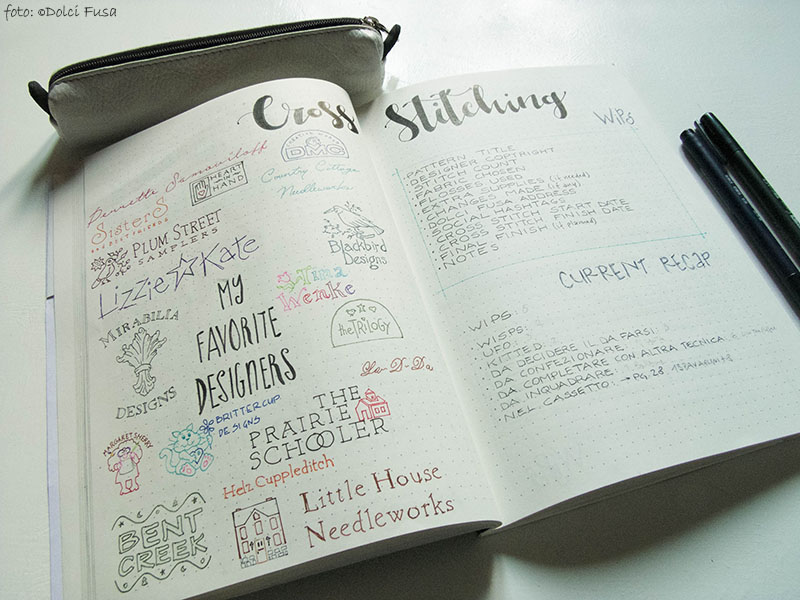 foto: ©Dolci Fusa
Cross Stitching
Bennette Samouiloff
HEART
IN
HAND
DMC
Country Cottage
Needleworks
SISTERS
PLUM STREET
SAMPLERS
Blackbird
Designs
Lizzie Kate
MY
FAVORITE
DESIGNERS
Tina
Wenke
MIRABILIA
DESIGNS
theTRILOGY
La-D-Da
MARGARET SHERRY
BRITTERCUP
DESIGNS
THE
PRAIRIE
SCHOOLER
Helz Cuppleditch
BENT
CREEK
Little House
Needleworks
WIPs
· PATTERN TITLE
· DESIGNER COPYRIGHT
· STITCH COUNT
· FABRIC CHOSEN
· FLOSSES USED
· EXTRA SUPPLIES (if needed)
· CHANGES MADE (if any)
· DOLCI FUSA ADDRESS
· SOCIAL HASHTAGS
· CROSS STITCH START DATE
· CROSS STITCH FINISH DATE
· FINAL FINISH (if planned)
· NOTES
CURRENT RECAP
· WIPS
· WISPS:
· UFO:
· KITTED:
· DA DECIDERE IL DA FARSI:
· DA CONFEZIONARE
· DA COMPLETARE CON ALTRA TECNICA
· DA INQUADRARE
· NEL CASSETTO: → PG. 28